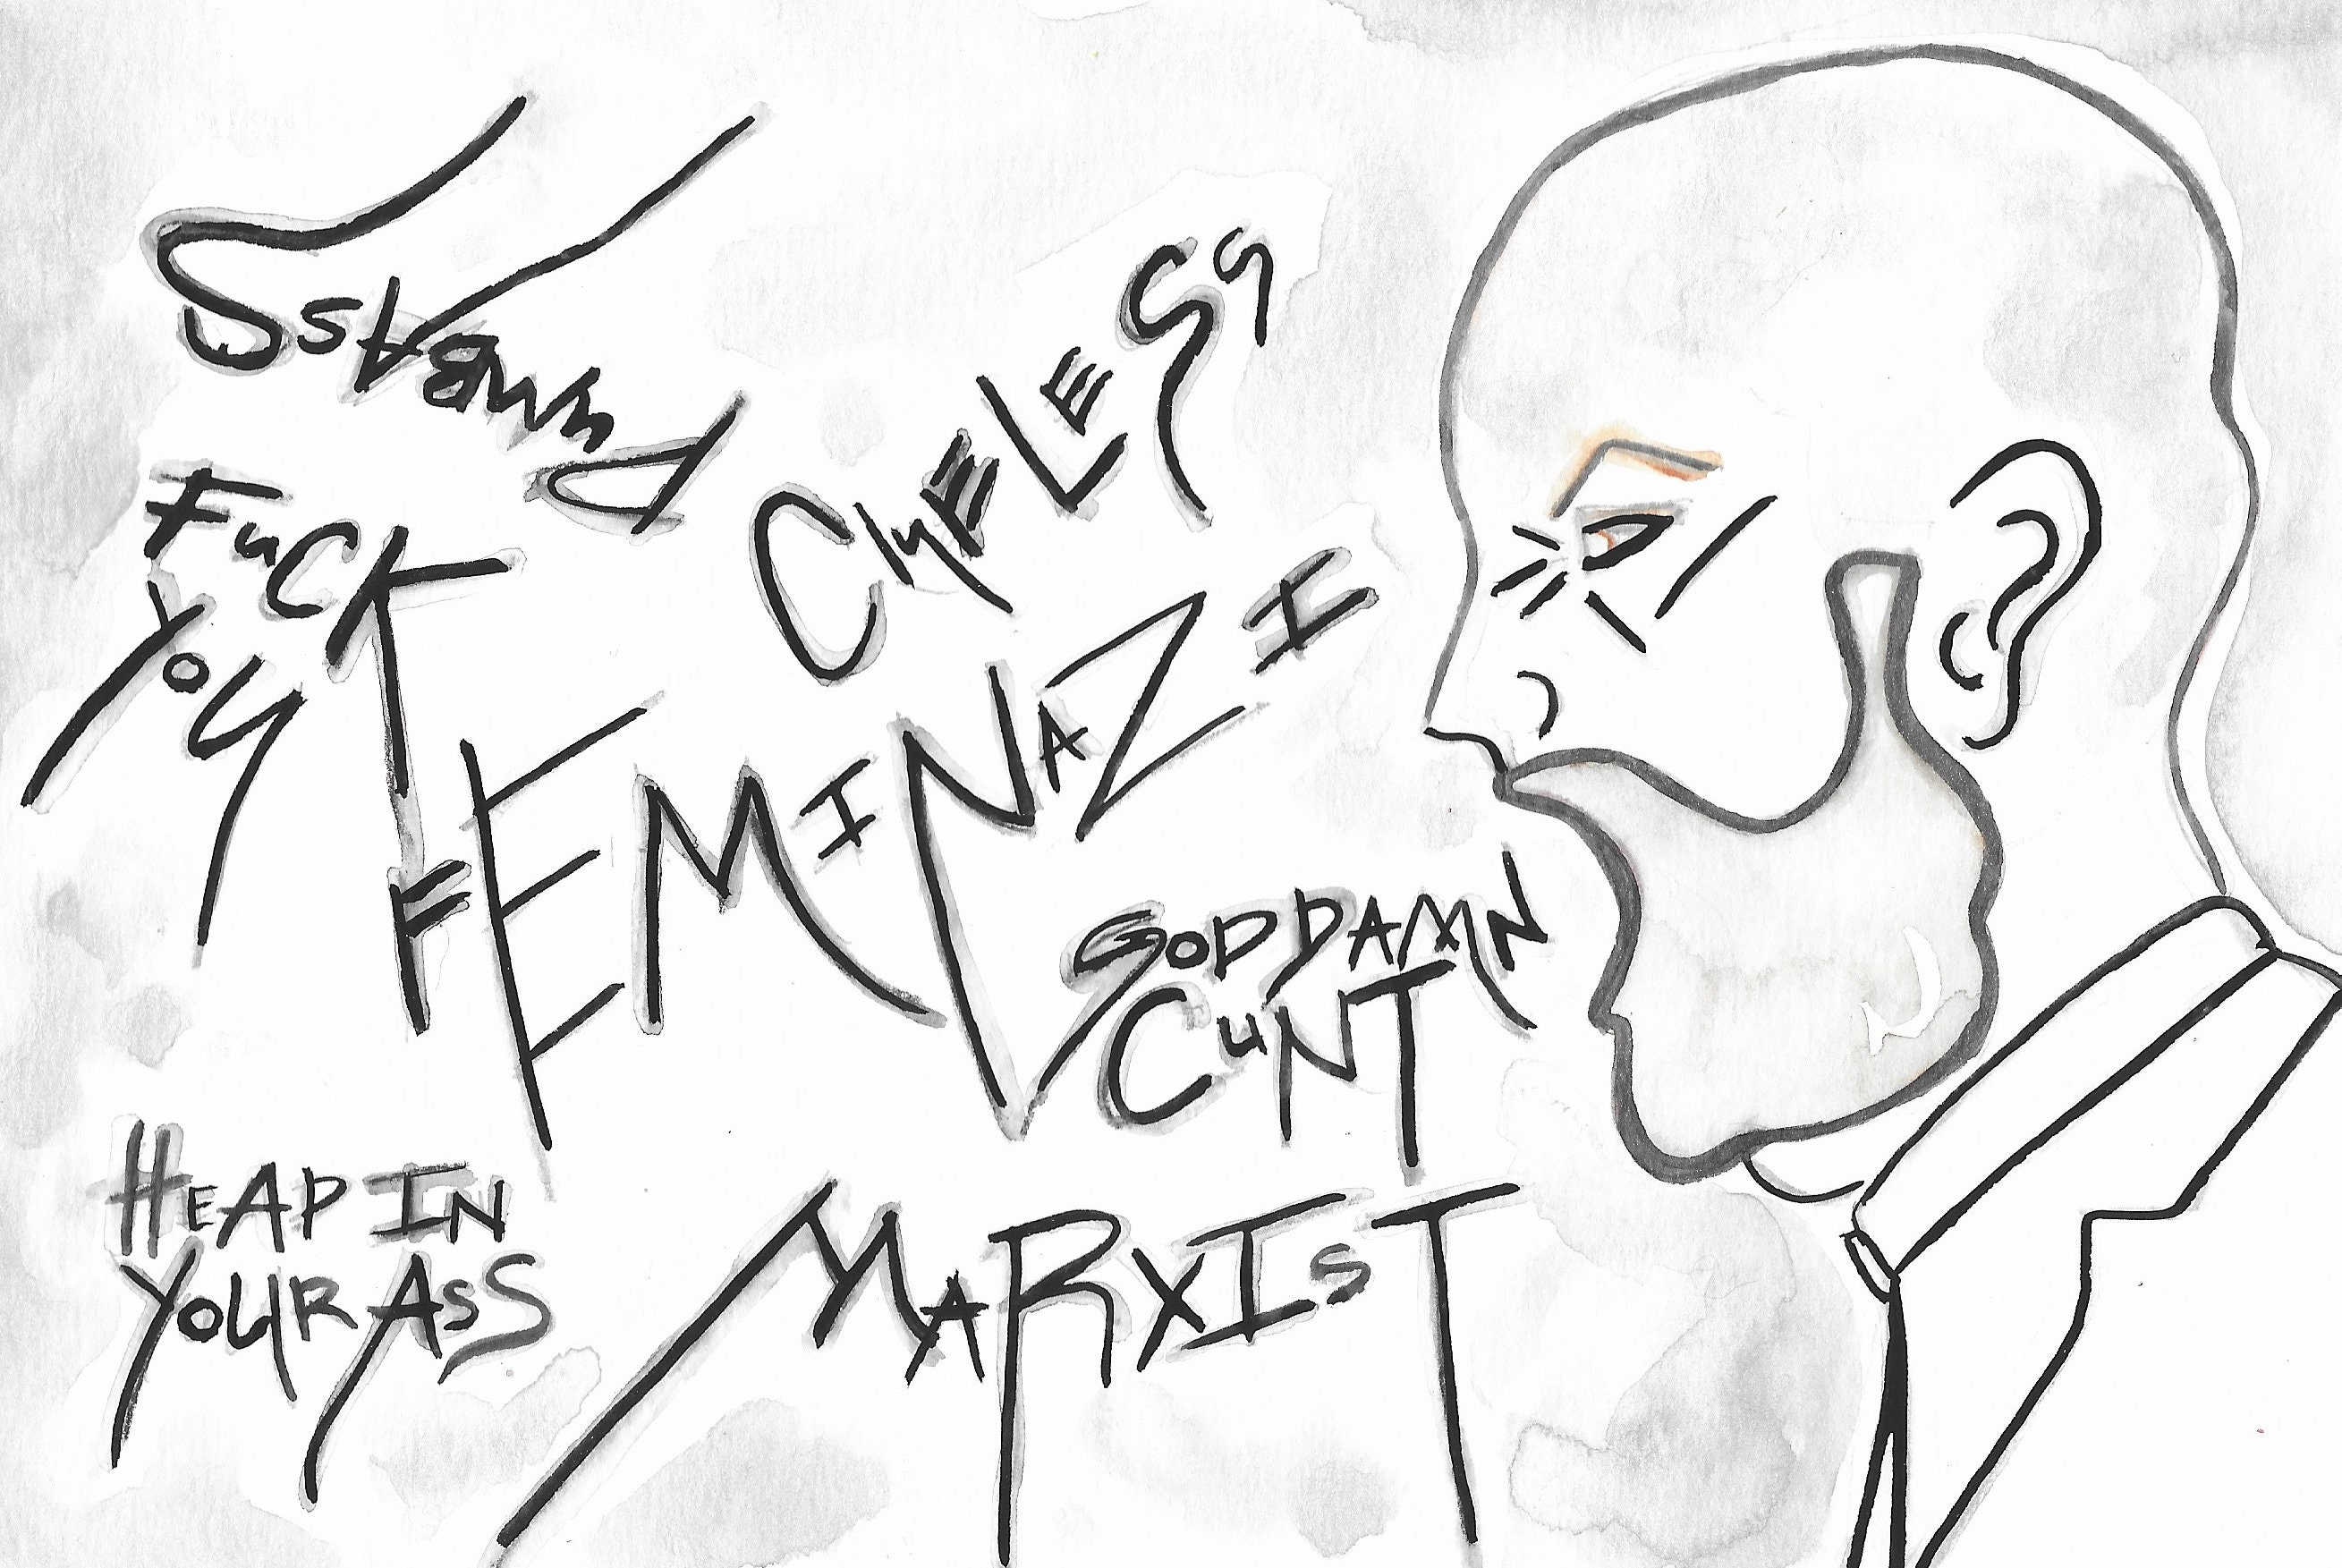 DUMBASS
CLUELESS
FUCK
YOU
FEMINAZI
GODDAMN
CUNT
HEAD IN
YOUR ASS
MARXIST